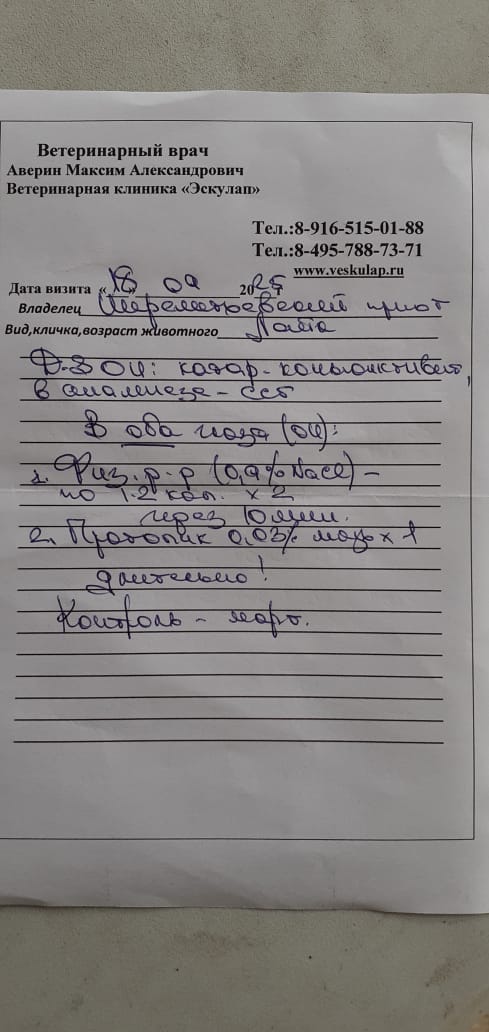 Ветеринарный врач
Аверин Максим Александрович
Ветеринарная клиника «Эскулап»
Тел.:8-916-515-01-88
Тел.:8-495-788-73-71
www.veskulap.ru
Дата визита «18» 09 2025
Владелец Шереметьевский приют
Вид,кличка,возраст животного Лайа
Д-З OU: катар. конъюнктивит,
в анамнезе - ССГ
В оба глаза (OU):
1. Физ. р-р (0,9% NaCl) -
по 1-2 кап. х 2
через 10 мин.
2. Протопик 0,03% мазь х 1
длительно!
Контроль - март.